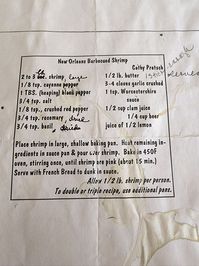 New Orleans Barbecued Shrimp
Cathy Pratsch
2 to 3 lb. shrimp, large
1/8 tsp. cayenne pepper
1 TBS. (heaping) blank pepper
3/4 tsp. salt
1/8 tsp., crushed red pepper
3/4 tsp. rosemary, dried
3/4 tsp. basil, dried
1/2 lb. butter
3-4 cloves garlic crushed
1 tsp. Worcestershire
sauce
1/2 cup clam juice
1/4 cup beer
juice of 1/2 lemon
Place shrimp in large, shallow baking pan. Heat remaining in-
gredients in sauce pan & pour over shrimp. Bake in 450F
oven, stirring once, until shrimp are pink (about 15 min.)
Serve with French Bread to dunk in sauce.
Allow 1/2 lb. shrimp per person.
To double or triple recipe, use additional pans.